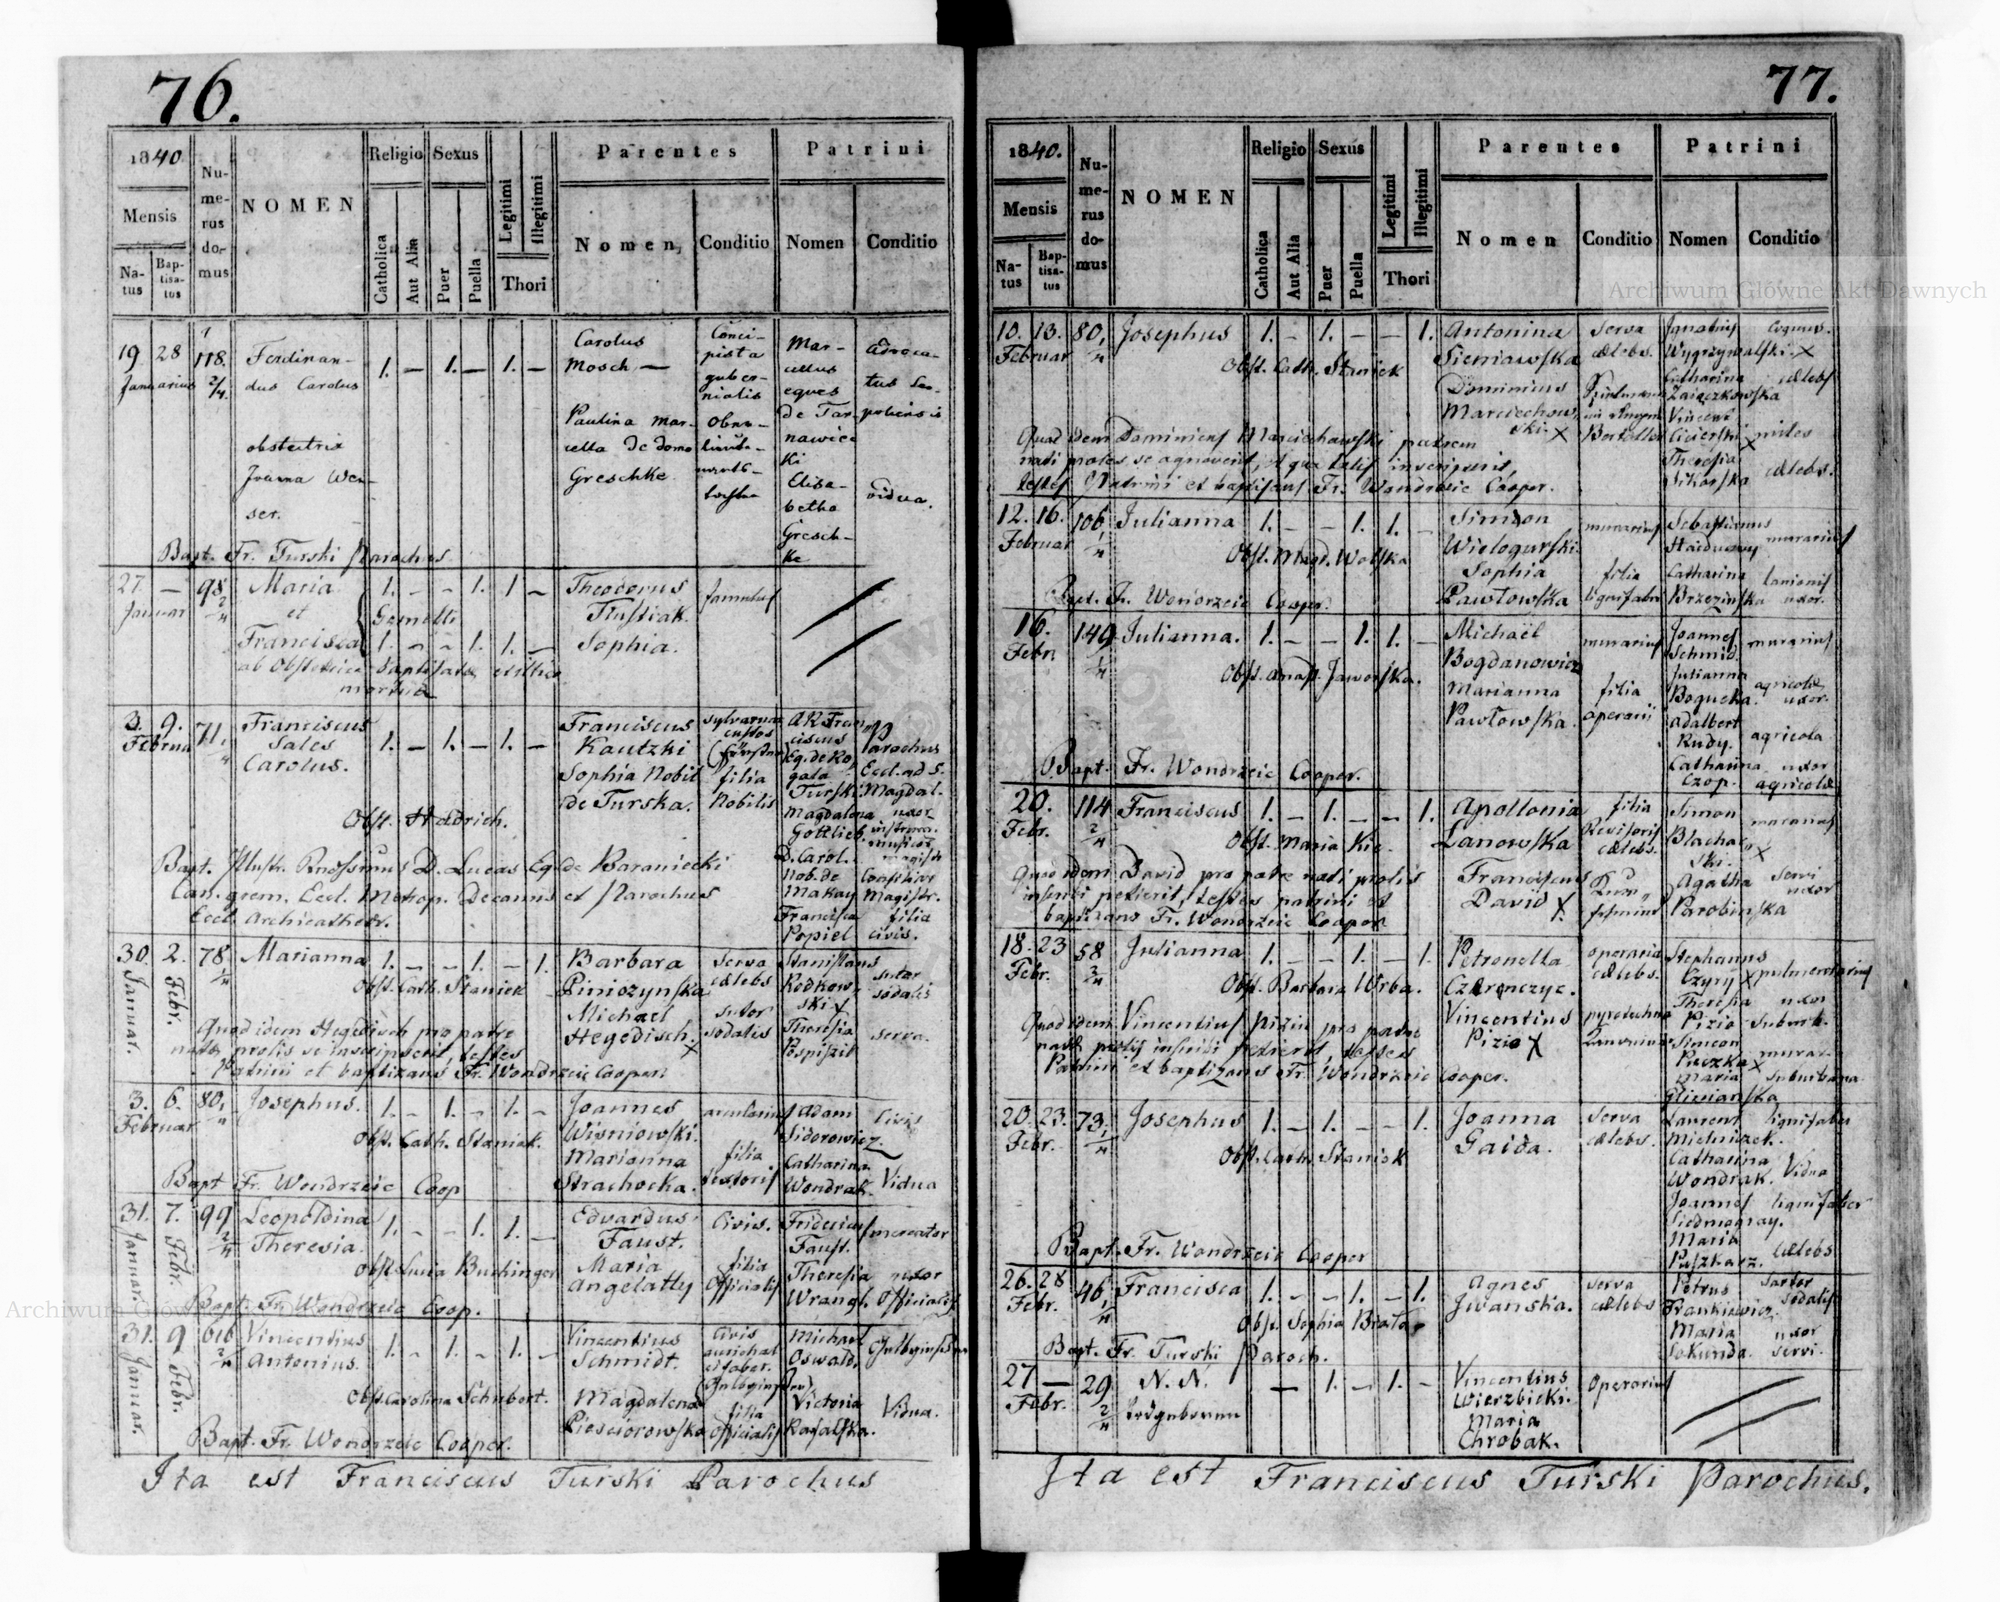 76.
1840
Mensis
Natus
Baptisatus
Numerus domus
NOMEN
Religio
Catholica
Aut Alia
Sexus
Puer
Puella
Legitimi
Illegitimi
Thori
Parentes
Nomen,
Conditio
Patrini
Nomen
Conditio
19 28 118. Ferdinan-
Januarius 2/4 dus Carolus
1. — 1. — 1. —
Carolus
Mosch —
Paulina Mar-
cella de domo
Greschke
Conci-
pista
guber-
nialis
Mar-
cellus
eques
de Tar-
nawiec
ki
Elisa-
betha
Gresch-
ke
vidua.
obstetrix
Joanna Wen-
ser.
Bapt. Fr. Turski Parochus
27. — 98 Maria 1. - - 1. 1 -
Januar 2/4 et Gemelli
Francisca 1. - - 1. 1. -
ab Obstetrice baptisatae
mortuae
Theodorus
Sophia.
famulus
3. 9. 71. Franciscus
Februar Sales
Carolus.
1. — 1. — 1. —
Franciscus
Kautzki
Sophia Nobil
de Turska.
sylvarum
custos
filia
Nobilis
A R Fran
ciscus
Eq. de Ro
gala
Turski
Magdalena
Gottlieb
D. Carol.
Nob. de
Makay
Francisca
Popiel
Parochus
Eccl. ad S.
Magdal.
uxor
Magistr.
filia
civis.
Obst. Hedrich.
Bapt. Illustr. D. Lucas Eq. de Baraniecki
Can. grem. Eccl. Metrop. Decanus et Parochus
Eccl. Archicathedr.
30. 2. 78 Marianna 1. - - 1. - 1.
Januar. Febr. 1/4
Obst. Cath. Staniek
Barbara
Piniczynska
Michael
Hegedisch. X
serva
caelebs
sutor
sodalis
Stanislaus
Rodkow
ski X
Theresia
Pospiszil
sutor
sodalis
serva.
Quod idem Hegedisch pro patre
natae prolis se inscripserit, testes
Patrini et baptizans Fr. Wondrzeic Cooper.
3. 6. 80. Josephus. 1. - 1. - 1. -
Februar
Obst. Cath. Staniek.
Joannes
Wisniowski.
Marianna
Strachocka.
filia
textoris
Adam
Sidorowicz
Catharina
Wondrak.
Civis
Vidua
Bapt. Fr. Wondrzeic Coop
31. 7. 99 Leopoldina
Januar. Febr. 2/4 Theresia
1. - - 1. 1. -
Obst. Lucia Buchinger
Eduardus
Faust.
Maria
Angelatty
Civis.
filia
Officialis
Faust.
Theresia
Wrangl.
mercator
uxor
Officialis
Bapt. Fr. Wondrzeic Coop.
31. 9 616 Vincentius
Januar. Febr. 2/4 Antonius.
1. - 1. - 1. -
Obst. Carolina Schubert.
Vincentius
Schmidt.
Magdalena
Piesciorowska
Civis
filia
Officialis
Michael
Oswald.
Victoria
Rafalska.
Vidua.
Bapt. Fr. Wondrzeic Cooper.
Ita est Franciscus Turski Parochus
77.
1840.
Mensis
Natus
Baptisatus
Numerus domus
NOMEN
Religio
Catholica
Aut Alia
Sexus
Puer
Puella
Legitimi
Illegitimi
Thori
Parentes
Nomen
Conditio
Patrini
Nomen
Conditio
10. 13. 80. Josephus 1. - 1. - - 1.
Februar
Obst. Cath. Staniek
Antonina
Sieniawska
Dominicus
Marciechow-
ski X
serva
caelebs.
Ignatius
Wygrzywalski X
Catharina
Zaięczkowska
Vincent
Theresia
Sikorska
coquus.
caelebs
miles
caelebs.
Quod idem Dominicus Marciechowski patrem
nati prolis se agnoverit, et qua talis inscripserit,
testes Patrini et baptisans Fr. Wondrzeic Cooper.
12. 16. 106 Julianna 1. - - 1. 1. -
Februar
Obst. Magd. Wolska
Simeon
Wielogurski
Sophia
Pawłowska
murarius
filia
lignifabri
Sebastianus
Catharina
Brzezinska
murarius
lanionis
uxor.
Bapt. Fr. Wondrzeic Cooper.
16. 149 Julianna. 1. - - 1. 1. -
Febr. 1/4
Obst. Anast. Jaworska.
Michaël
Bogdanowicz
Marianna
Pawłowska.
murarius
filia
operarii
Joannes
Schmid.
Julianna
Bogucka.
Adalbert
Rudy.
Catharina
Czop.
murarius
agricolae
uxor.
agricola
uxor
agricolae
Bapt. Fr. Wondrzeic Cooper.
20. 114 Franciscus 1. - 1. - - 1.
Febr. 2/4
Obst. Maria Kic.
Apollonia
Lanowska
Franciscus
David X.
filia
Revisoris
caelebs.
Simon
Blacha
ski. X
Agatha
Parobinska
murarius
servi
uxor
Quod idem David pro patre nati prolis
inseri petierit, testes patrini et
baptizans Fr. Wondrzeic Cooper
18. 23 58 Julianna 1. - - 1. - 1.
Febr. 2/4
Obst. Barbara Wrba.
Petronella
Czaronczyc.
Vincentius
Pizio X
operaria
caelebs.
Stephanus
Czyrij X
Theresia
Pizio
Simeon
Pieczka X
Maria
Gliwianska
uxor
suburb.
murar.
suburbana
Quod idem Vincentius Pizio pro patre
natae prolis inseribi petierit, testes
Patrini et baptizans Fr. Wondrzeic Cooper.
20. 23. 73. Josephus 1. - 1. - - 1.
Febr. 1/4
Obst. Cath. Staniek
Joanna
Gaida.
serva
caelebs.
Laurent
Mielniczek.
Catharina
Wondrak.
Joannes
Siedmogray.
Maria
Puszkarz.
lignifaber
Vidua
lignifaber
caelebs
Bapt. Fr. Wondrzeic Cooper
26. 28 46 Francisca 1. - - 1. - 1.
Febr. 1/4
Obst. Sophia Brata
Agnes
Iwanska.
serva
caelebs
Petrus
Frankiewicz
Maria
Sokunda.
sartor
sodalis
uxor
servi.
Bapt. Fr. Turski Paroch.
27 — 29 N. N. — 1. - 1. -
Febr. 2/4
Vincentius
Wierzbicki.
Maria
Chrobak.
operarius
Ita est Franciscus Turski Parochus.
Archiwum Główne Akt Dawnych
Archiwum Główne